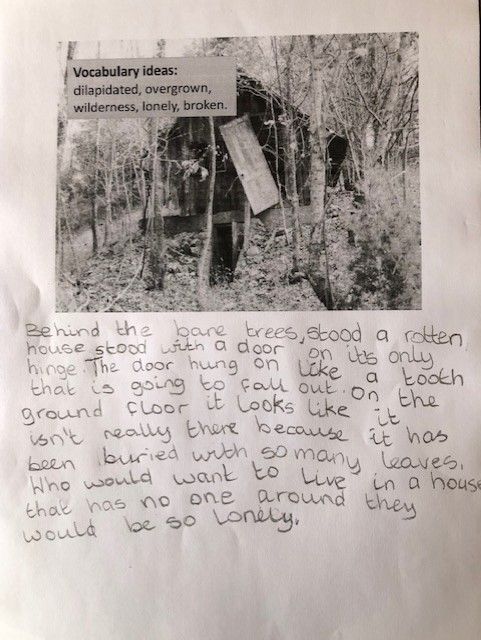 Vocabulary ideas:
dilapidated, overgrown,
wilderness, lonely, broken.
Behind the bare trees, stood a rotten
house stood with a door on its only
hinge. The door hung on like a tooth
that is going to fall out. On the
ground floor it looks like it
isn't really there because it has
been buried with so many leaves.
Who would want to live in a house
that has no one around they
would be so lonely.